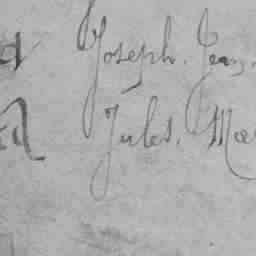 Joseph. Jean.
Jules. Ma